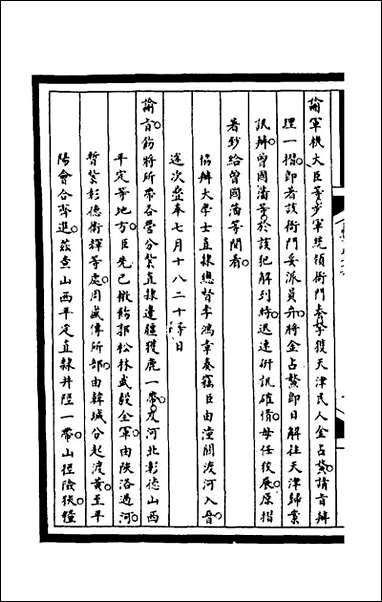 諭軍機大臣等步軍統領衙門奏拏獲天津民人金占鰲請旨辦
理一摺即著該衙門妥派員弁將金占鰲即日解往天津歸案
訊辦曾國藩等於該犯解到時迅速研訊確情毋任狡展原摺
著鈔給曾國藩等閱看
協辦大學士直隸總督李鴻章奏竊臣由潼關渡河入晉
迭次歷奉七月十八二十等日
諭旨飭將所帶各營分紮直隸邊疆獲鹿一帶及河北彰德山西
平定等地方臣先已檄飭郭松林武毅全軍由陝洛過河
暫紮彰德衛輝等處周盛傳所部由韓城分起渡黃至平
陽會合齊進茲查山西平定直隸井陘一帶山徑險狹僅